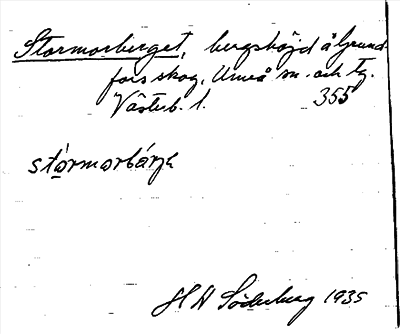 Stormorberget, bergshöjd å Grund
fors skog, Umeå sn. och tg.
Västerb. l. 355
stårmorbärje
H N Söderberg 1935